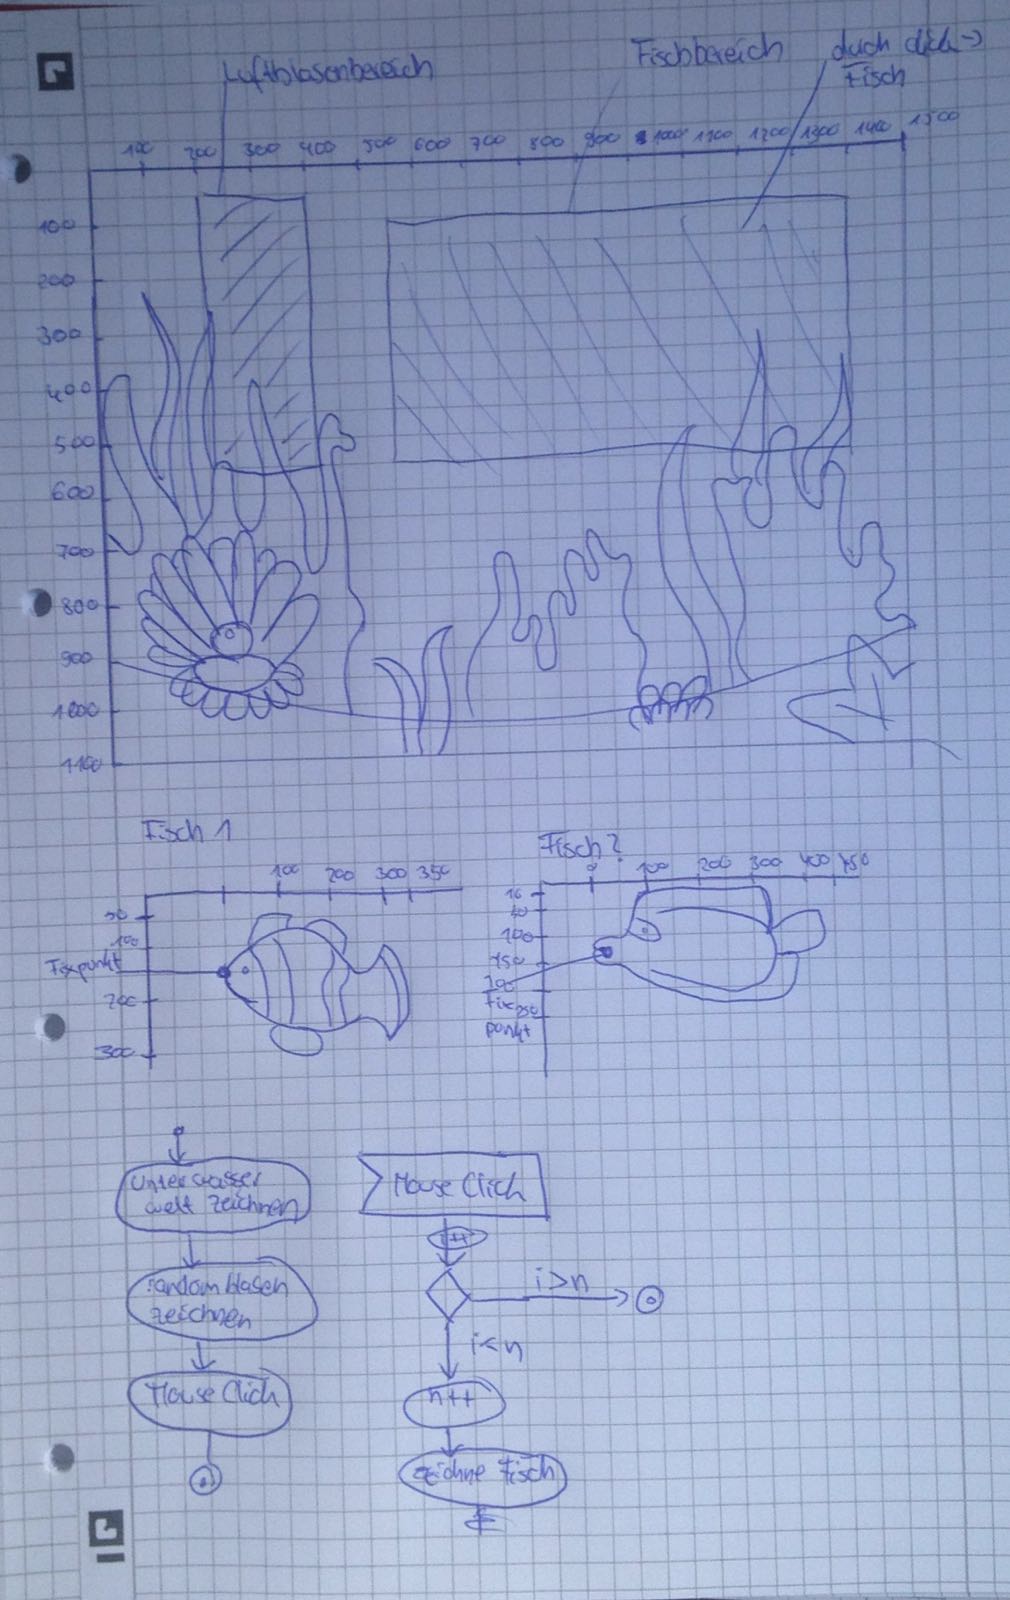 Luftblasenbereich
Fischbereich
duch click->
Fisch
100 200 300 400 500 600 700 800 900 1000 1100 1200 1300 1400 1500
100
200
300
400
500
600
700
800
900
1000
1100
Fisch 1
100 200 300 350
50
100
Fixpunkt
200
300
Fisch 2
0 100 200 300 400 450
16
40
100
150
200
Fix 250
punkt
Unterwasser
welt zeichnen
random blasen
zeichnen
Mouse Click
Mouse Click
i++
i>n
i<n
n++
zeichne Fisch